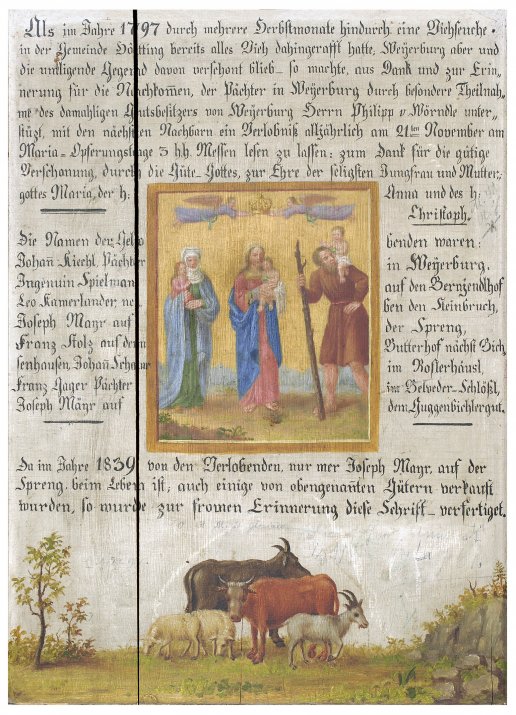 Als im Jahre 1797 durch mehrere Herbstmonate hindurch eine Viehseuche
in der Gemeinde Hötting bereits alles Vieh dahingerafft hatte, Weÿerburg aber und
die umligende Gegend davon verschont blieb – so machte, aus Dank und zur Erin„
nerung für die Nachkom̄en, der Pächter in Weÿerburg durch besondere Theilnah„
me des damahligen Gutsbesitzers von Weÿerburg Herrn Philipp v Wörndle unter„
stüzt, mit den nächsten Nachbarn ein Verlobniß alljährlich am 21ten November am
Maria-Opferungstage 3 h.h. Messen lesen zu lassen: zum Dank für die gütige
Verschonung, durch die Güte Gottes, zur Ehre der seligsten Jungfrau und Mutter
gottes Maria, der h: Anna und des h:
Christoph.
Die Namen der Gelobenden waren:
Johañ Kiechl Pächter in Weÿerburg.
Ingenuin Spielman auf den Gernzendlhof
Leo Kamerlander, neben den Steinbruch,
Joseph Mayr auf der Spreng,
Franz Stolz auf dem Butterhof nächst Bich„
senhausen, Johañ im Roslerhäusl,
Franz Hager Pächter im Belveder-Schlößl,
Joseph Mäyr auf dem Guggenbichlergut.
Da im Jahre 1839 von den Verlobenden, nur mer Joseph Mayr, auf der
Spreng, beim Leben ist; auch einige von obengenañten Gütern verkauft
wurden, so wurde zur fromen Erinnerung diese Schrift verfertiget.